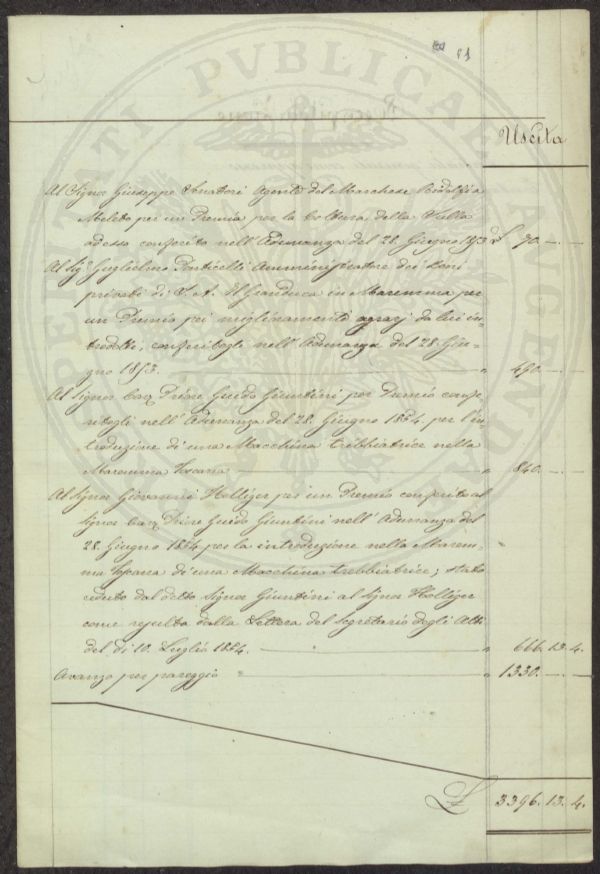 91
PROSPERITATI PVBLICAE AVGENDAE
Uscita
Al Signor Giuseppe Senatori Agente del Marchese Ridolfi a
Meleto per un Premio per la Coltura della Sulla
adesso conferito nell'Adunanza del 28. Giugno 1853. £ 70. — . —
Al Sig.r Guglielmo Ponticelli Amministratore dei Beni
privati di S. A. Il Granduca in Maremma per
un Premio pei miglioramenti agrarj da lui in-
trodotti, conferitogli nell'Adunanza del 28. Giu-
gno 1853. — " 490. — . —
Al Signor Cav. Priore Guido Giuntini per Premio confe-
ritogli nell'Adunanza del 28. Giugno 1854. per l'in-
troduzione di una Macchina tribbiatrice nella
Maremma Toscana — " 840. — . —
Al Signor Giovanni Holliger per un Premio conferito al
Signor Cav. Priore Guido Giuntini nell'Adunanza del
28. Giugno 1854. per la introduzione nella Marem-
ma Toscana di una Macchina trebbiatrice; stato
ceduto dal detto Signor Giuntini al Signor Holliger
come resulta dalla Lettera del Segretario degli Atti
del dì 10. Luglio 1854. — " 666. 13. 4.
Avanzo per pareggio " — " 1330. — . —
£ 3396. 13. 4.